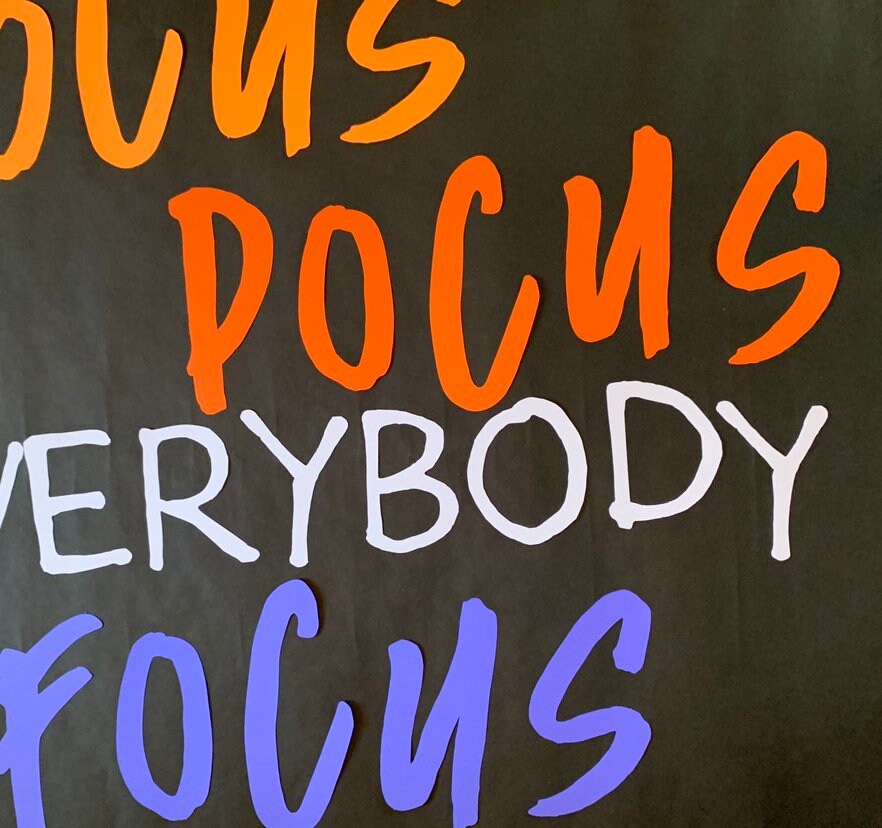 OCUS
POCUS
VERYBODY
FOCUS